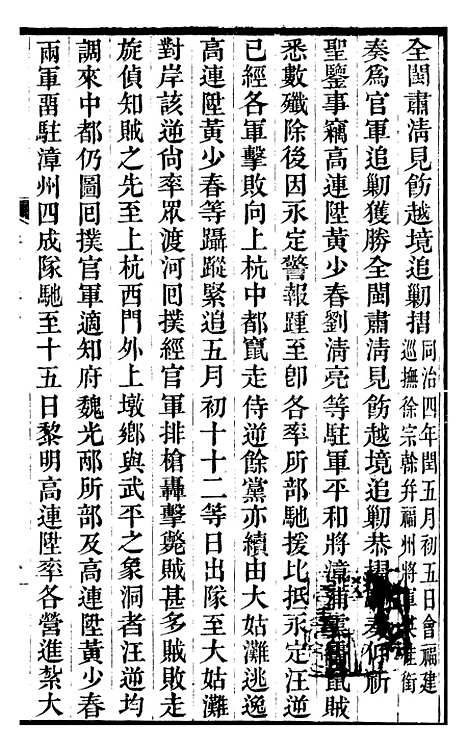 全閩肅清見飭越境追勦摺
同治四年閏五月初五日會福建
巡撫徐宗幹并福州將軍英桂銜
奏為官軍追勦獲勝全閩肅清見飭越境追勦恭摺奏祈
聖鑒事竊高連陞黃少春劉清亮等駐軍平和將漳浦雲霄竄賊
悉數殲除後因永定警報踵至卽各率所部馳援比抵永定汪逆
已經各軍擊敗向上杭中都竄走侍逆餘黨亦續由大姑灘逃逸
高連陞黃少春等躡蹤緊追五月初十十二等日出隊至大姑灘
對岸該逆尙率眾渡河回撲經官軍排槍轟擊斃賊甚多賊敗走
旋偵知賊之先至上杭西門外上墩鄉與武平之象洞者汪逆均
調來中都仍圖回撲官軍適知府魏光邴所部及高連陞黃少春
兩軍畱駐漳州四成隊馳至十五日黎明高連陞率各營進紮大